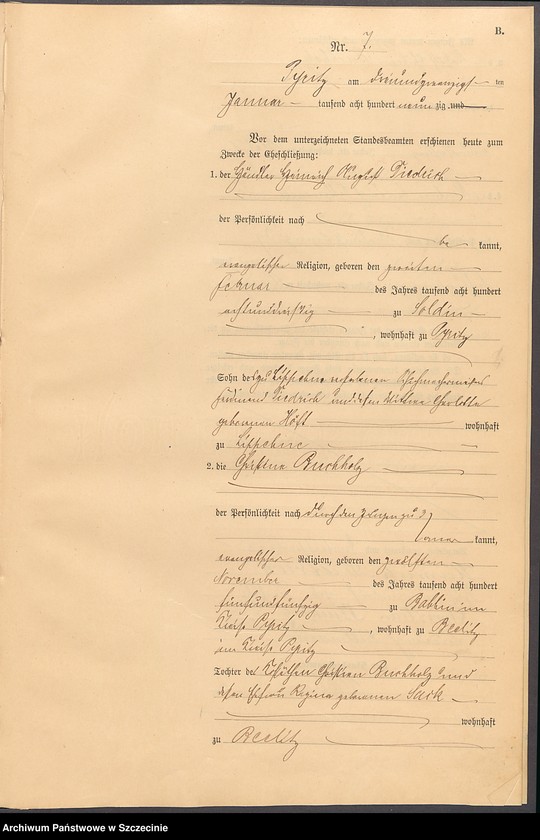 B.
Nr. 7.
Pyritz am dreiundzwanzigsten
Januar tausend acht hundert neunzig und
Vor dem unterzeichneten Standesbeamten erschienen heute zum
Zwecke der Eheschließung:
1. der Händler Heinrich August Diedrich
der Persönlichkeit nach
be kannt,
evangelischer Religion, geboren den zweiten
Februar des Jahres tausend acht hundert
achtunddreißig zu Soldin
, wohnhaft zu Pyritz
Sohn des zu Lippehne verstorbenen Schuhmachermeister
Ferdinand Diedrich und dessen Wittwe Charlotte
geborenen Höft wohnhaft
zu Lippehne
2. die Christine Buchholz
der Persönlichkeit nach durch den Zeugen zu 3
kannt,
evangelischer Religion, geboren den zwölften
November des Jahres tausend acht hundert
fünfundfünfzig zu Babbin im
Kreise Pyritz, wohnhaft zu Beelitz
im Kreise Pyritz
Tochter des Christian Buchholz und
dessen Ehefrau Regina geborenen Sack
wohnhaft
zu Beelitz
Archiwum Państwowe w Szczecinie